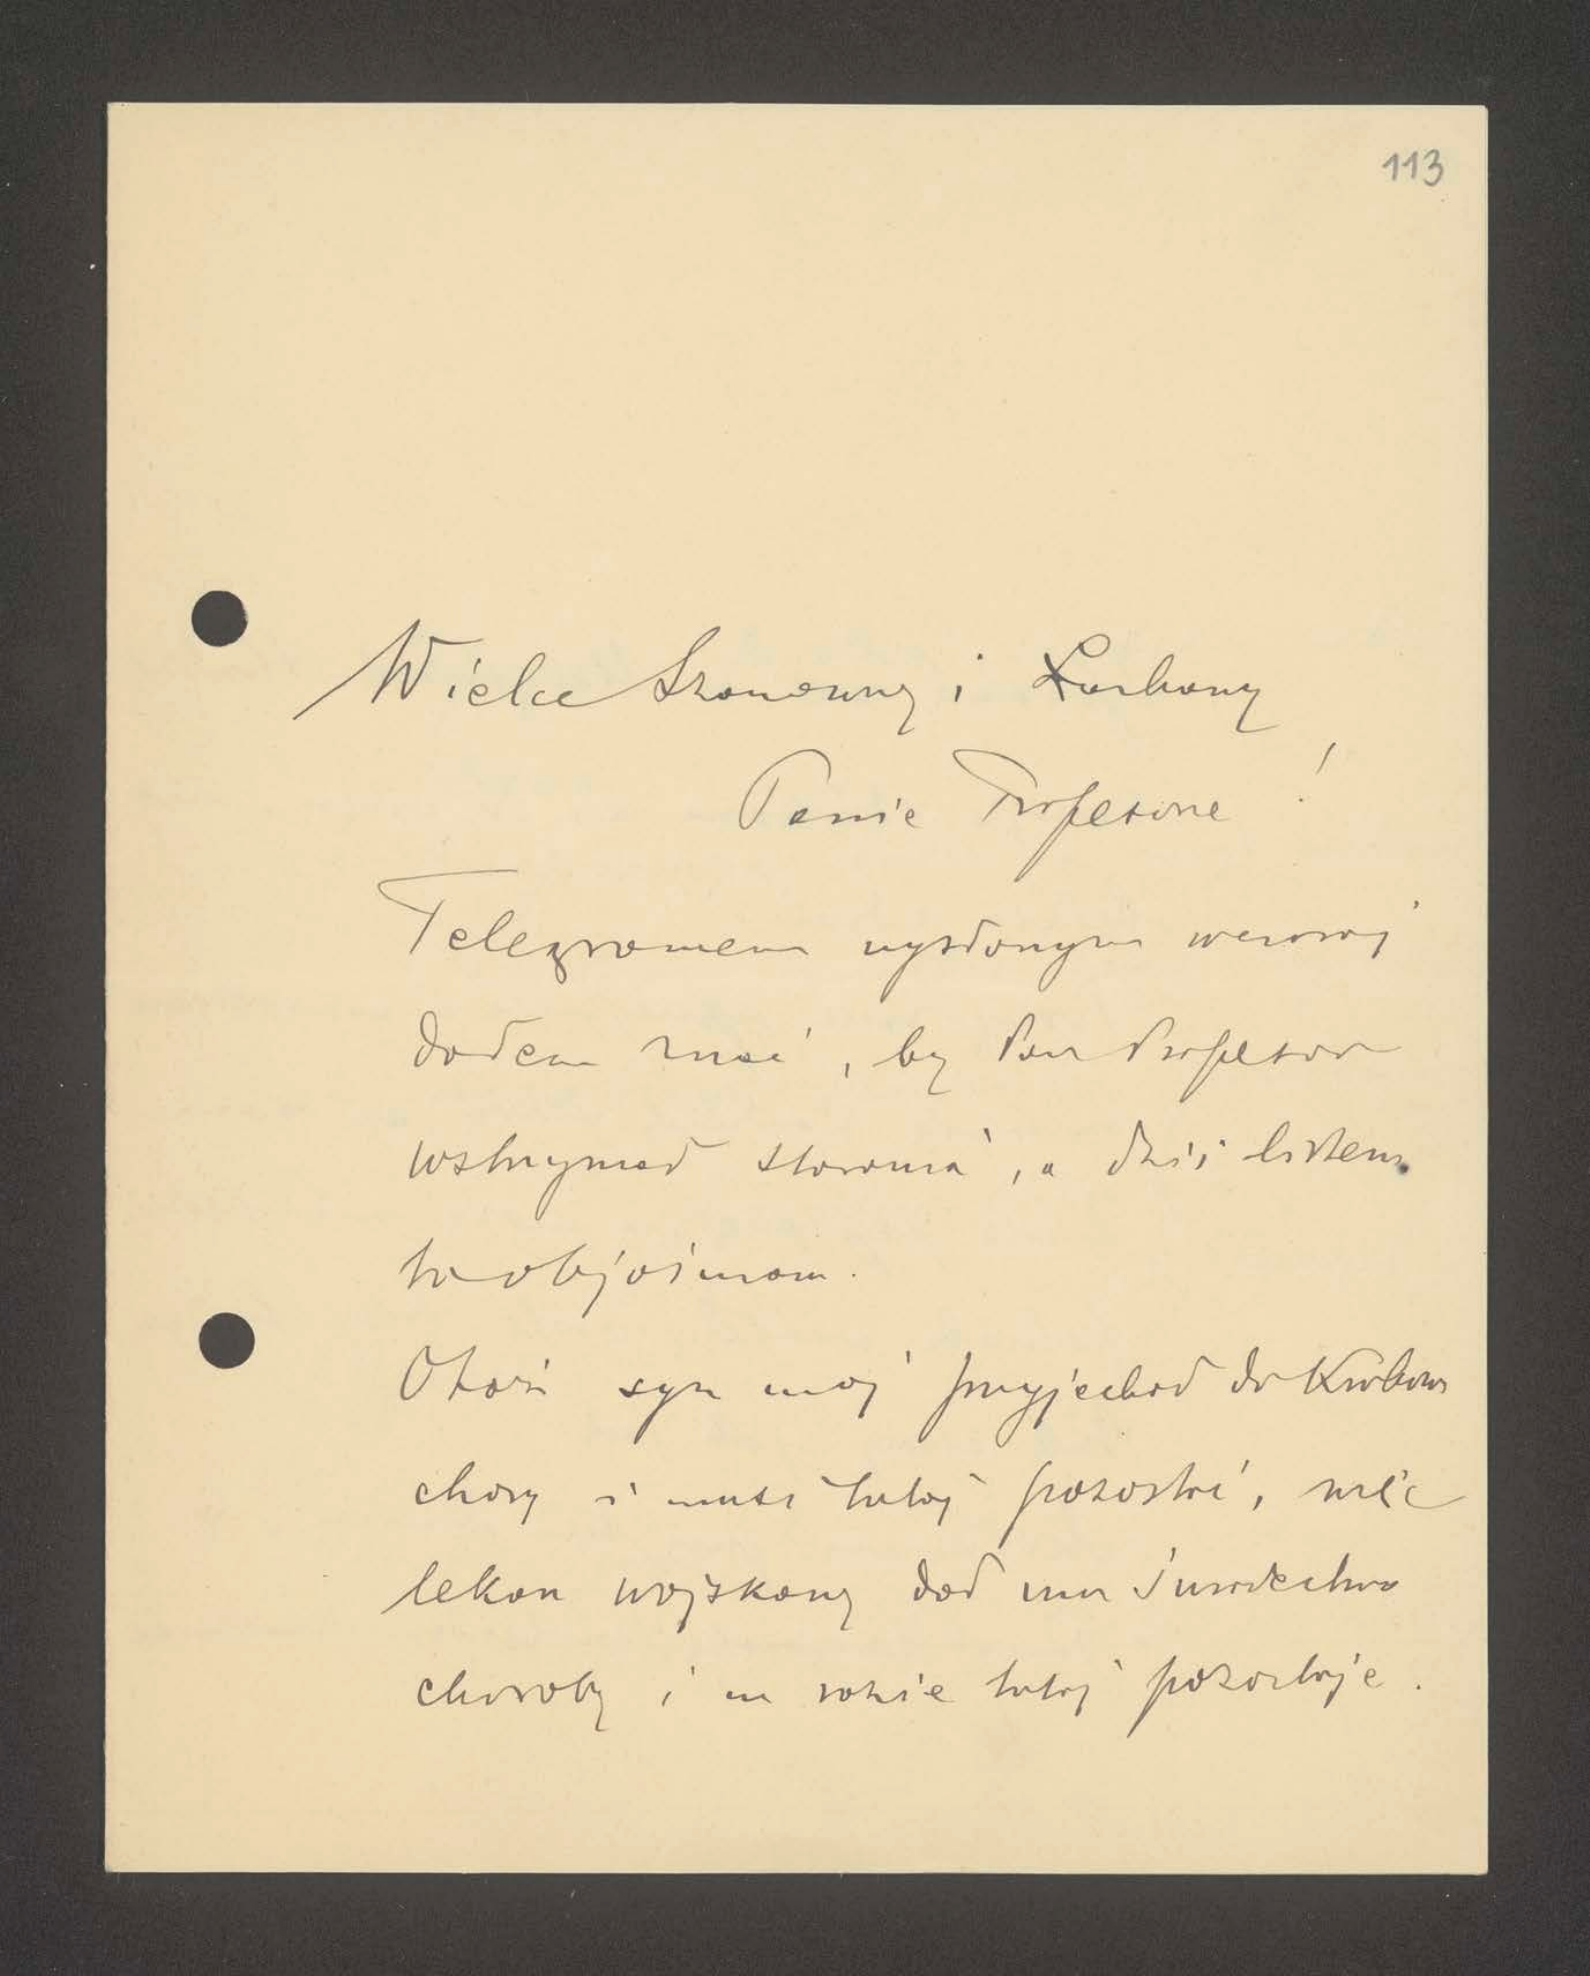 113
Wielce Szanowny i Kochany
Panie Profesorze!
Telegramem wysłanym wczoraj
dałem znać, by Pan Profesor
wstrzymał starania, a dziś listem
to objaśniam.
Otóż syn mój przyjechał do Krakowa
chory i musi tutaj pozostać, więc
lekarz wojskowy dał mu świadectwo
choroby i na razie tutaj pozostaje.